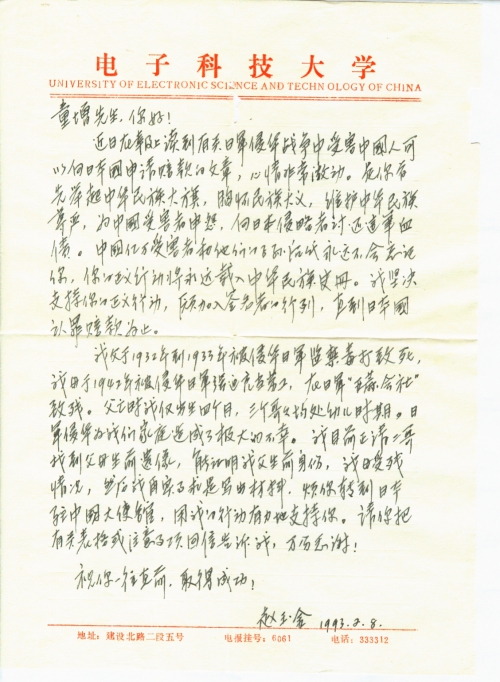 电子科技大学
UNIVERSITY OF ELECTRONIC SCIENCE AND TECHNOLOGY OF CHINA
童增先生，你好！
近日在报上读到有关日軍侵华战争中受害中國人可
以向日本國申请赔款的文章，心情非常激动。是你首
先举起中华民族大旗，胸怀民族大义，维护中华民族
尊严，为中國受害者申怨，向日本侵略者讨还这笔血
债。中國亿万受害者和他们的子孙后代永远不会忘记
你，你的正义行动将永远载入中华民族史册。我坚决
支持你的正义行动，愿加入签名者的行列，直到日本國
认罪赔款为止。
我父于1932年到1933年被侵华日軍监禁毒打致死，
我母于1942年被侵华日軍强迫充当劳工，在日軍"会社"
致残。父亡时我仅出生四个月，三个哥哥均处幼儿时期。日
軍侵华为我们家庭造成了极大的不幸。我目前正请二哥
找到父母生前遗像，能证明我父生前身份，我母受残
情况，然后我再实事求是写出材料，烦你转到日本
驻中國大使馆，用我的行动有力地支持你。请你把
有关表格或注意事项回信告诉我，万分感谢！
祝你一往直前，取得成功！
赵玉金 1993.2.8.
地址：建设北路二段五号 电报挂号：6061 电话：333312